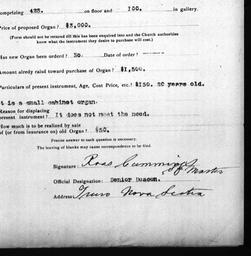 comprizing 425. on floor and 100. in gallery.
Price of proposed Organ? $3,000.
(Form should not be returned till this has been enquired into and the Church authorities
know what the instrument they desire to purchase will cost.)
Has new Organ been ordered? No. Date of order?
Amount already raised toward purchase of Organ? $1,500.
Particulars of present instrument, Age, Cost Price, etc.? $150. 20 years old.
It is a small cabinet organ.
Reason for displacing
present instrument? It does not meet the need.
How much is to be realized by sale
of (or from insurance on) old Organ? $50.
Precise answer to each question is necessary.
The leaving of blanks may cause correspondence to be filed.
Signature: Ross Cumming
Official Designation: Senior Deacon.
Address: Truro Nova Scotia